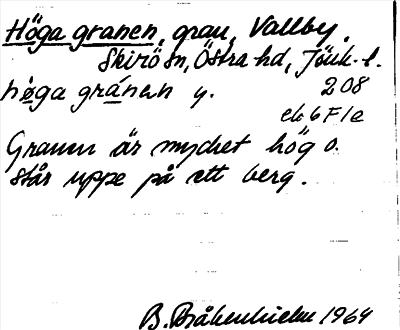 Höga granen, gran, Vallby,
Skirö sn, Östra hd, Jönk. l.
hö̱ga gránen y. 208
ek 6F1e
Granen är mycket hög o.
står uppe på ett berg.
B. Bråkenhielm 1964